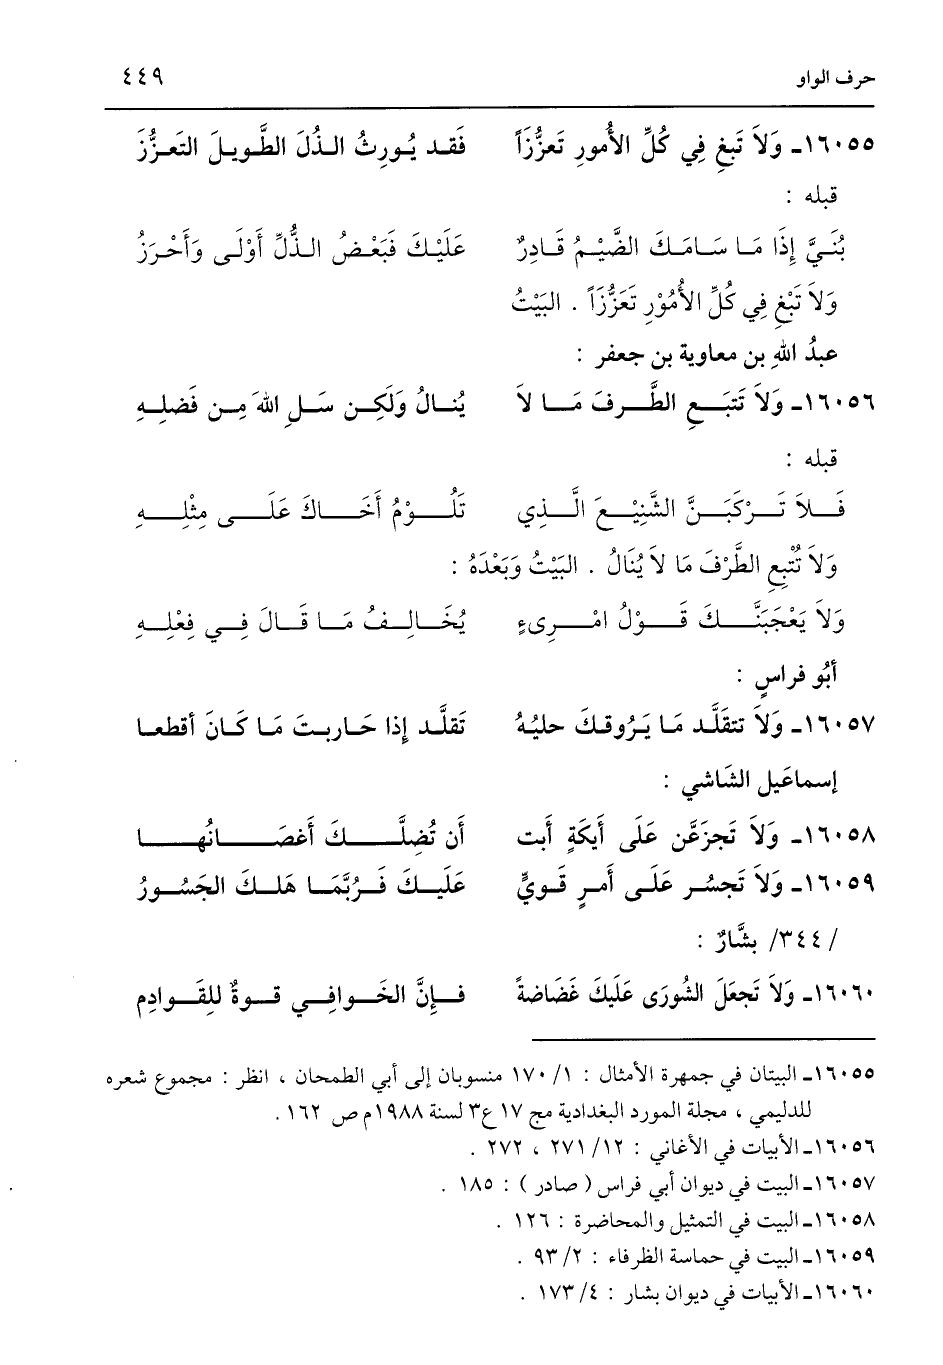 حرف الواو ٤٤٩
١٦٠٥٥ـ وَلاَ تَبغِ فِي كُلِّ الأُمورِ تَعزُّزَاً فَقَد يُورِثُ الذُلَ الطَّويلَ التَعزُّزَ
قبله :
بُنَيَّ إِذَا مَا سَامَكَ الضَّيْمُ قَادِرٌ عَلَيْكَ فَبَعْضُ الذُّلِّ أَوْلَى وَأَحْرَزُ
وَلاَ تَبْغِ فِي كُلِّ الأُمُوْرِ تَعَزُّزَاً . البَيْتُ
عبدُ اللهِ بن معاوية بن جعفر :
١٦٠٥٦ـ وَلاَ تَتبَعِ الطَّرفَ مَا لاَ يُنالُ وَلَكِن سَلِ اللهَ مِن فَضلِهِ
قبله :
فَلاَ تَرْكَبَنَّ الشَّنِيْعَ الَّذِي تَلُوْمُ أَخَاكَ عَلَى مِثْلِهِ
وَلاَ تُتْبِعِ الطَّرْفَ مَا لاَ يُنَالُ . البَيْتُ وَبَعْدَهُ :
وَلاَ يَعْجَبَنَّكَ قَوْلُ امْرِىءٍ يُخَالِفُ مَا قَالَ فِي فِعْلِهِ
أَبُو فراسٍ :
١٦٠٥٧ـ وَلاَ تتقَلَّد مَا يَرُوقكَ حليُهُ تَقلَّد إِذا حَاربتَ مَا كَانَ أقطعا
إسماعَيل الشَاشي :
١٦٠٥٨ـ وَلاَ تَجزَعَن عَلَى أَيكَةٍ أَبت أَن تُضلَّكَ أَغصَانُهَا
١٦٠٥٩ـ وَلاَ تَجسُر عَلَى أَمرٍ قَويٍّ عَلَيكَ فَرُبَّمَا هَلكَ الجَسُورُ
/٣٤٤/ بشَّارٌ :
١٦٠٦٠ـ وَلاَ تَجعَلَ الشُورَى عَلَيكَ غَضَاضةً فإنَّ الخَوافِي قوةٌ للِقَوادِم
١٦٠٥٥ـ البيتان في جمهرة الأمثال : ١/ ١٧٠ منسوبان إلى أبي الطمحان ، انظر : مجموع شعره
للدليمي ، مجلة المورد البغدادية مج ١٧ ع٣ لسنة ١٩٨٨م ص ١٦٢ .
١٦٠٥٦ـ الأبيات في الأغاني : ١٢/ ٢٧١ ، ٢٧٢ .
١٦٠٥٧ـ البيت في ديوان أبي فراس ( صادر ) : ١٨٥ .
١٦٠٥٨ـ البيت في التمثيل والمحاضرة : ١٢٦ .
١٦٠٥٩ـ البيت في حماسة الظرفاء : ٢/ ٩٣ .
١٦٠٦٠ـ الأبيات في ديوان بشار : ٤/ ١٧٣ .